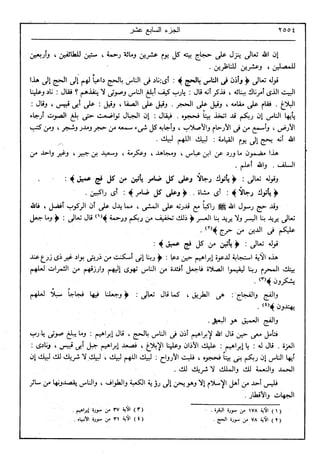 ٢٥٥٤ الجزء السابع عشر
إن الله تعالى ينزل على حجاج بيته كل يوم عشرين ومائة رحمة ، ستين للطائفين ، وأربعين
للمصلين ، وعشرين للناظرين .
قوله تعالى ﴿ وأذن فى الناس بالحج ﴾ : أى : ناد فى الناس بالحج داعياً لهم إلى الحج إلى هذا
البيت الذى أمرناك ببنائه ، فذكر أنه قال : يارب كيف أبلغ الناس وصوتى لا ينفذهم ؟ فقال : ناد وعلينا
البلاغ . فقام على مقامه ، وقيل على الحجر . وقيل على الصفا ، وقيل : على أبى قبيس ، وقال :
يأيها الناس إن ربكم قد اتخذ بيتاً فحجوه . فيقال : إن الجبال تواضعت حتى بلغ الصوت أرجاء
الأرض ، وأسمع من فى الأرحام والأصلاب ، وأجابه كل شىء سمعه من حجر ومدر وشجر ، ومن كتب
الله أنه يحج إلى يوم القيامة : لبيك اللهم لبيك .
هذا مضمون ما ورد عن ابن عباس ، ومجاهد ، وعكرمة ، وسعيد بن جبير ، وغير واحد من
السلف . والله أعلم .
وقوله تعالى : ﴿ يأتوك رجالاً وعلى كل ضامر يأتين من كل فج عميق ﴾ :
﴿ يأتوك رجالاً ﴾ : أى مشاة . ﴿ وعلى كل ضامر ﴾ : أى راكبين .
وقد حج رسول الله ﷺ راكباً مع قدرته على المشى ، مما يدل على أن الركوب أفضل ، فالله
تعالى يريد بنا اليسر ولا يريد بنا العسر ﴿ ذلك تخفيف من ربكم ورحمة ﴾(١) قال تعالى : ﴿ وما جعل
عليكم فى الدين من حرج ﴾(٢) .
قوله تعالى : ﴿ يأتين من كل فج عميق ﴾ :
هذه الآية استجابة لدعوة إبراهيم حين دعا : ﴿ ربنا إنى أسكنت من ذريتى بواد غير ذى زرع عند
بيتك المحرم ربنا ليقيموا الصلاة فاجعل أفئدة من الناس تهوى إليهم وارزقهم من الثمرات لعلهم
يشكرون ﴾(٣) .
والفج والفجاج : هى الطريق ، كما قال تعالى : ﴿ وجعلنا فيها فجاجاً سبلاً لعلهم
يهتدون ﴾(٤) .
والفج العميق هو البعيد .
فتأمل معى حين قال الله لإبراهيم أذن فى الناس بالحج . قال إبراهيم : وما يبلغ صوتى يارب
العزة . قال له : يا إبراهيم : عليك الأذان وعلينا الإبلاغ ، فصعد إبراهيم جبل أبى قبيس ، ونادى :
أيها الناس إن ربكم بنى بيتاً فحجوه ، فلبت الأرواح : لبيك اللهم لبيك ، لبيك لا شريك لك لبيك إن
الحمد والنعمة لك والملك لا شريك لك .
فليس أحد من أهل الإسلام إلا وهو يحن إلى رؤية الكعبة والطواف ، والناس يقصدونها من سائر
الجهات والأقطار .
(١) الآية ١٧٨ من سورة البقرة . (٣) الآية ٣٧ من سورة إبراهيم .
(٢) الآية ٧٨ من سورة الحج . (٤) الآية ٣١ من سورة الأنبياء .